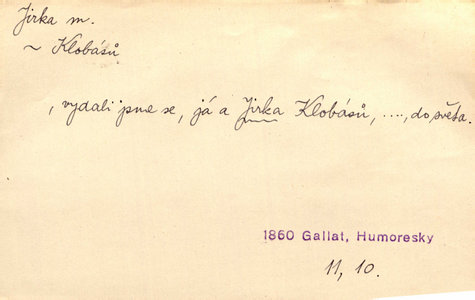 Jirka m.
~ Klobásů
, vydali jsme se, já a Jirka Klobásů, ...., do světa.
1860 Gallat, Humoresky
11, 10.